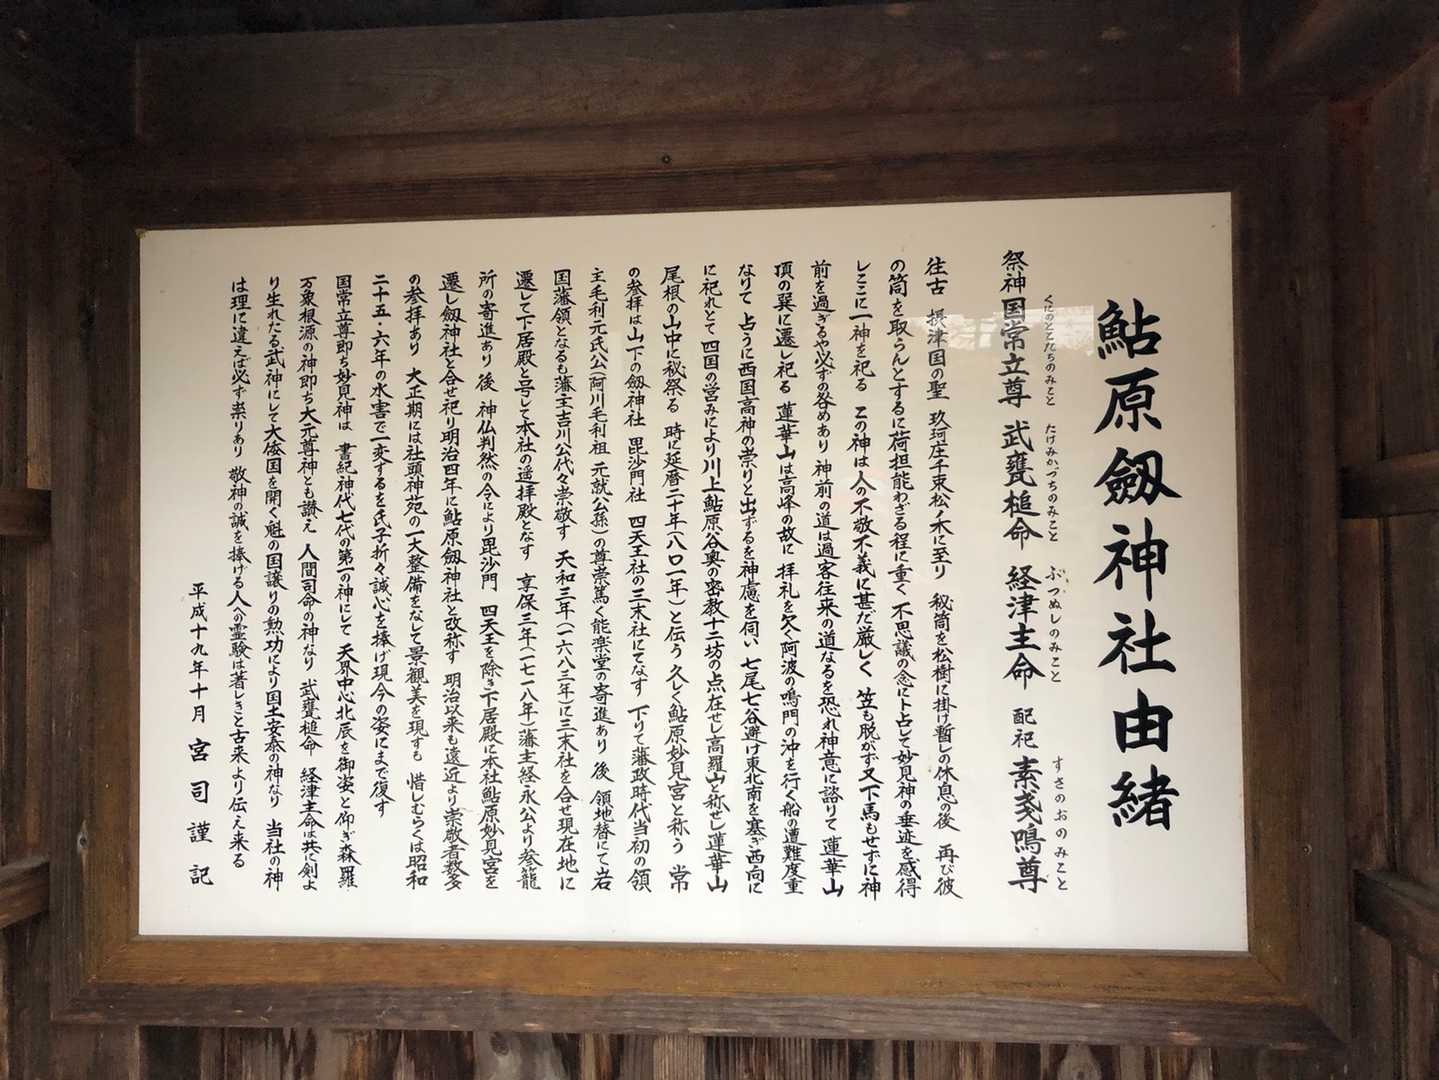 鮎原劔神社由緒
祭神国常立尊 武甕槌命 経津主命 配祀 素戔鳴尊
くにのとこたちのみこと たけみかづちのみこと ふつぬしのみこと すさのおのみこと
往古 摂津国の聖 玖珂庄千束松ノ木に至り 秘筒を松樹に掛け暫しの休息の後 再び彼
の筒を取らんとするに荷担能わざる程に重く 不思議の念に卜占して妙見神の垂迹を感得
しここに一神を祀る この神は人の不敬不義に甚だ厳しく 笠も脱がず又下馬もせずに神
前を過ぎるや必ずの咎めあり 神前の道は過客往来の道なるを恐れ神意に諮りて 蓮華山
頂の巽に遷し祀る 蓮華山は高峰の故に 拝礼を欠く阿波の鳴門の沖を行く船の遭難度重
なりて 占うに西国高神の祟りと出ずるを神慮を伺い 七尾七谷避け東北南を塞ぎ西向に
に祀れとて 四国の営みにより川上鮎原谷奥の密教十二坊の点在せし高羅山と称せし蓮華山
尾根の山中に秘祭る 時に延暦二十年(八〇一年)と伝う 久しく鮎原妙見宮と称う 常
の参拝は山下の劔神社 毘沙門社 四天王社の三末社にてなす 下りて藩政時代当初の領
主毛利元氏公(阿川毛利祖 元就公孫)の尊崇篤く能楽堂の寄進あり 後 領地替にて岩
国藩領となるも藩主吉川公代々崇敬す 天和三年(一六八三年)に三末社を合せ現在地に
遷して下居殿と号して本社の遥拝殿となす 享保三年(一七一八年)藩主経永公より参籠
所の寄進あり 後 神仏判然の令により毘沙門 四天王を除き下居殿に本社鮎原妙見宮を
遷し劔神社と合せ祀り明治四年に鮎原劔神社と改称す 明治以来も遠近より崇敬者数多
の参拝あり 大正期には社頭神苑の一大整備をなして景観美を現すも 惜しむらくは昭和
二十五・六年の水害で一変するを氏子折々誠心を捧げ現今の姿にまで復す
国常立尊即ち妙見神は 書紀神代七代の第一の神にして 天界中心北辰を御姿と仰ぎ森羅
万象根源の神即ち大元尊神とも讃え 人間司命の神なり 武甕槌命 経津主命は共に剣よ
り生れたる武神にして大倭国を開く魁の国譲りの勲功により国土安泰の神なり 当社の神
は理に違えば必ず祟りあり 敬神の誠を捧げる人への霊験は著しきと古来より伝え来る
平成十九年十月 宮司謹記